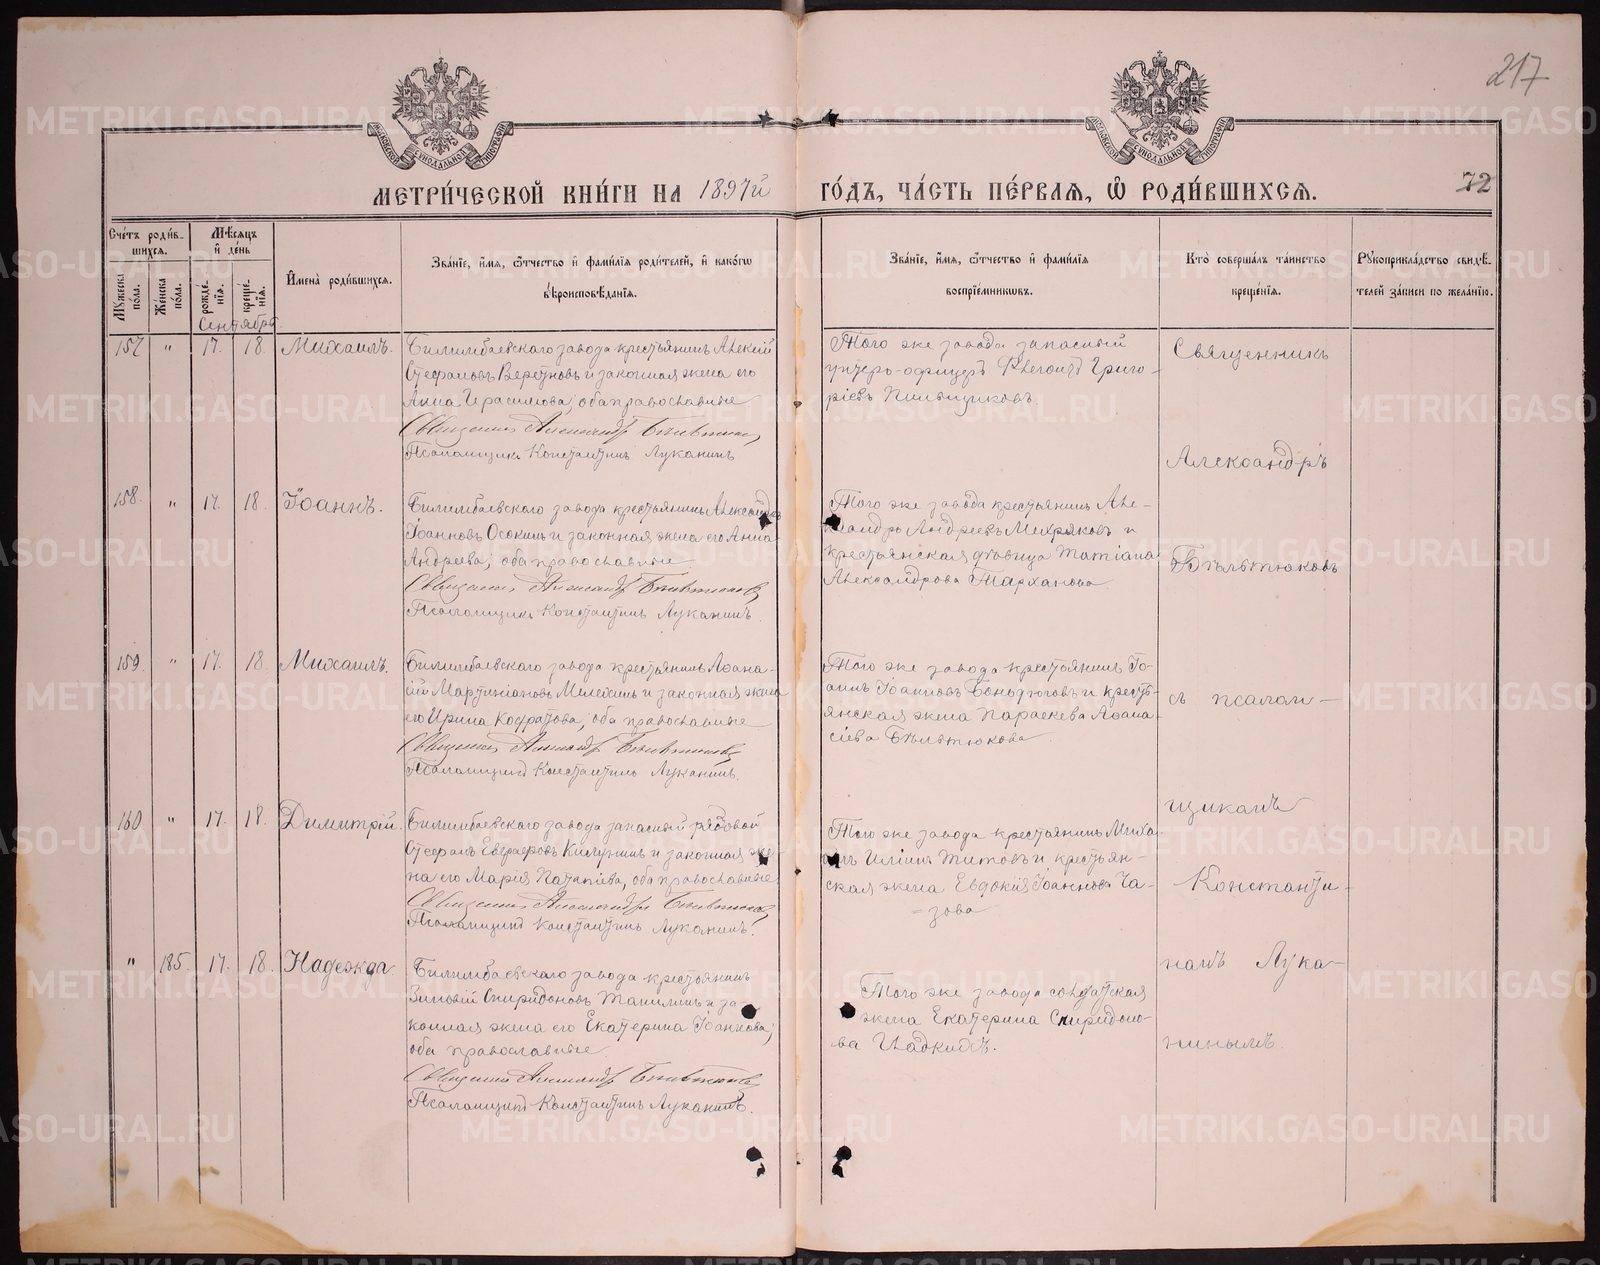 217
МЕТРИ́ЧЕСКОЙ КНИ́ГИ НА 1897й ГО́ДЪ, ЧА́СТЬ ПЕ́РВАЯ, Ѿ РОДИ́ВШИХСЯ.
72
Сче́тъ роди́в-
шихся.
Му́жеска по́ла.
Же́нска по́ла.
Мѣ́сяцъ и де́нь
рожде-
нія.
креще-
нія.
Имена̀ роди́вшихся.
Зва́ніе, и́мя, ѻ҆́тчество и҆ фами́лія роди́телей, и҆ како́гѡ
вѣроисповѣ́данія.
Зва́ніе, и́мя, ѻ҆́тчество и҆ фами́лія
воспріе́мниковъ.
Кто̀ соверша́лъ та́инство
креще́нія.
Рꙋкоприкла́дство свидѣ́-
телей за́писи по жела́нію.
Сентября
157 " 17. 18. Михаилъ.
Билимбаевскаго завода крестьянинъ Алексій
Стефановъ и законная жена его
Анна Герасимова, оба православные
Священникъ Александръ Бѣльтюковъ
Псаломщикъ Константинъ Луканинъ
Того же завода запасный
унтеръ-офицеръ Григо-
рiевъ Пильщиковъ.
Священникъ
Александръ
158. " 17. 18. Іоаннъ.
Билимбаевскаго завода крестьянинъ Александръ
Іоанновъ Осокинъ и законная жена его Анна
Андреева; оба православные
Священникъ Александръ Бѣльтюковъ
Псаломщикъ Константинъ Луканинъ.
Того же завода крестьянинъ Але-
ксандръ Андреевъ Мехряковъ и
крестьянская дѣвица Татіана
Александрова Тарханова
Бѣльтюковъ
159. " 17. 18. Михаилъ.
Билимбаевскаго завода крестьянинъ Аѳана-
сій Мартиніановъ Мелехинъ и законная жена
его Ирина Кодратова; оба православные
Священникъ Александръ Бѣльтюковъ
Псаломщикъ Константинъ Луканинъ.
Того же завода крестьянинъ Іо-
аннъ Іоанновъ и кресть-
янская жена Параскева Аѳана-
сіева Бѣльтюкова
съ псалом-
160 " 17. 18. Димитрій.
Билимбаевскаго завода запасный рядовой
Стефанъ Евграфовъ и законная же-
на его Марія Патапіева, оба православные
Священникъ Александръ Бѣльтюковъ
Псаломщикъ Константинъ Луканинъ.
Того же завода крестьянинъ Миха-
илъ Иліинъ Титовъ и крестьян-
ская жена Евдокія Іоаннова Ча-
= зова
щикомъ
Константи-
" 185. 17. 18. Надежда.
Билимбаевскаго завода крестьянинъ
Зиновій Спиридоновъ Танилинъ и за-
конная жена его Екатерина Іоаннова;
оба православные
Священникъ Александръ Бѣльтюковъ
Псаломщикъ Константинъ Луканинъ.
Того же завода солдатская
жена Екатерина Спиридоно-
ва
номъ Лука-
нинымъ.